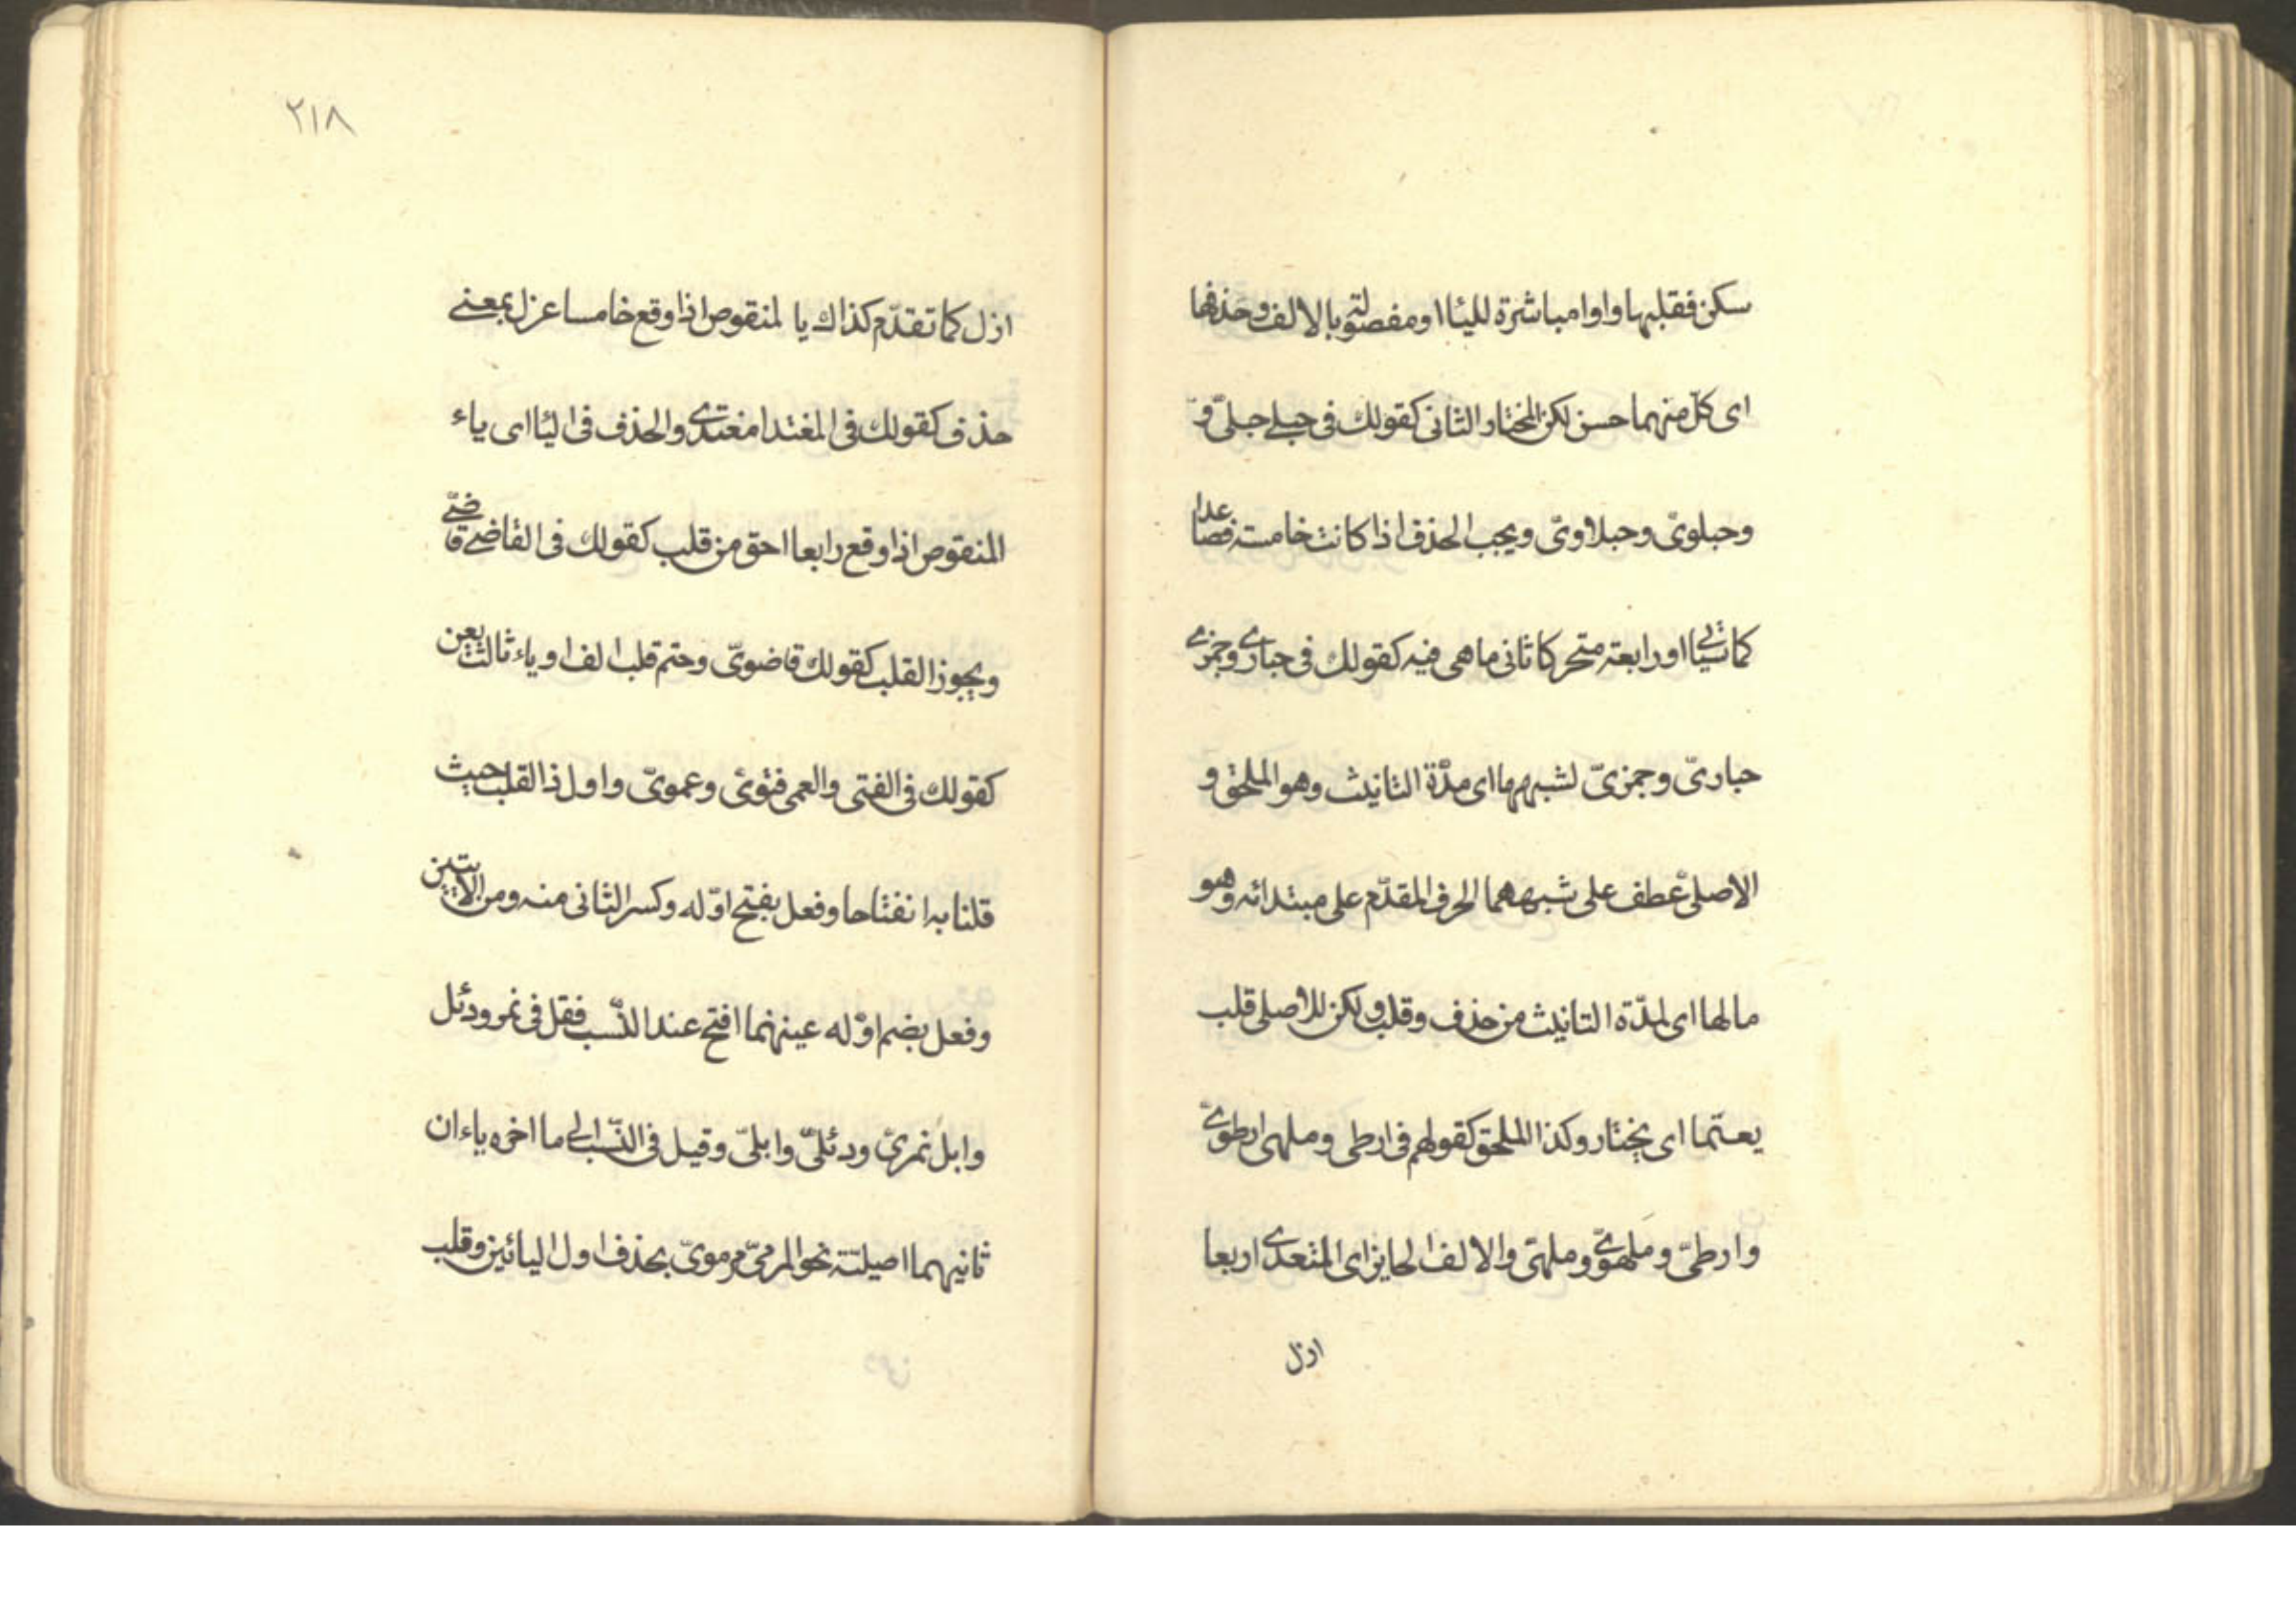 سكن فقلبها واوا مباشرة لليا او مفصولة بالالف وحذفها
اى كلّ منهما حسن لكن المختار الثانى كقولك فى حبلے حبلىّ و
وحبلوىّ وحبلاوىّ ويجب الحذف اذا كانت خامسة فصاعدا
كما سياتى او رابعة متحركا ثانى ما هى فيه كقولك فى حبارى وجمزى
حبارىّ وجمزىّ لشبهها اى مدّة التانيث وهو الملحق و
الاصلىّ عطف على شبهها الحرف المقدّم على مبتدائه وهو
ما لها اى لمدّة التانيث من حذف وقلب ولكن للاصلى قلب
يعتما اى يختار وكذا الملحق كقولهم فى ارطى وملهى ارطوىّ
وارطىّ ومَلهوىّ وملهىّ والالف الحايز اى المتعدى اربعا
ازل
٢١٨
ازل كما تقدّم كذاك يا المنقوص اذا وقع خامسا عزل بمعنى
حذف كقولك فى المغتدا مغتدى والحذف فى اليا اى ياء
المنقوص اذا وقع رابعا احق من قلب كقولك فى القاضے قاضىّ
ويجوز القلب كقولك قاضوىّ وحتم قلب الف او ياء ثالث يعن
كقولك فى الفتى والعمى فتوىّ وعموىّ واول ذا القلب حيث
قلنا به انفتاحا وفعل بفتح اوّله وكسر الثانى منه ومن الاتيين
وفعل بضم اوّله عينهما افتح عند النّسب فقل فى نمر ودئل
وابل نمرىّ ودئلىّ وابلىّ وقيل فى النّسب الى ما اخره ياءان
ثانيهما اصيلة نحو المرمىّ مرموىّ بحذف اول اليائين وقلب